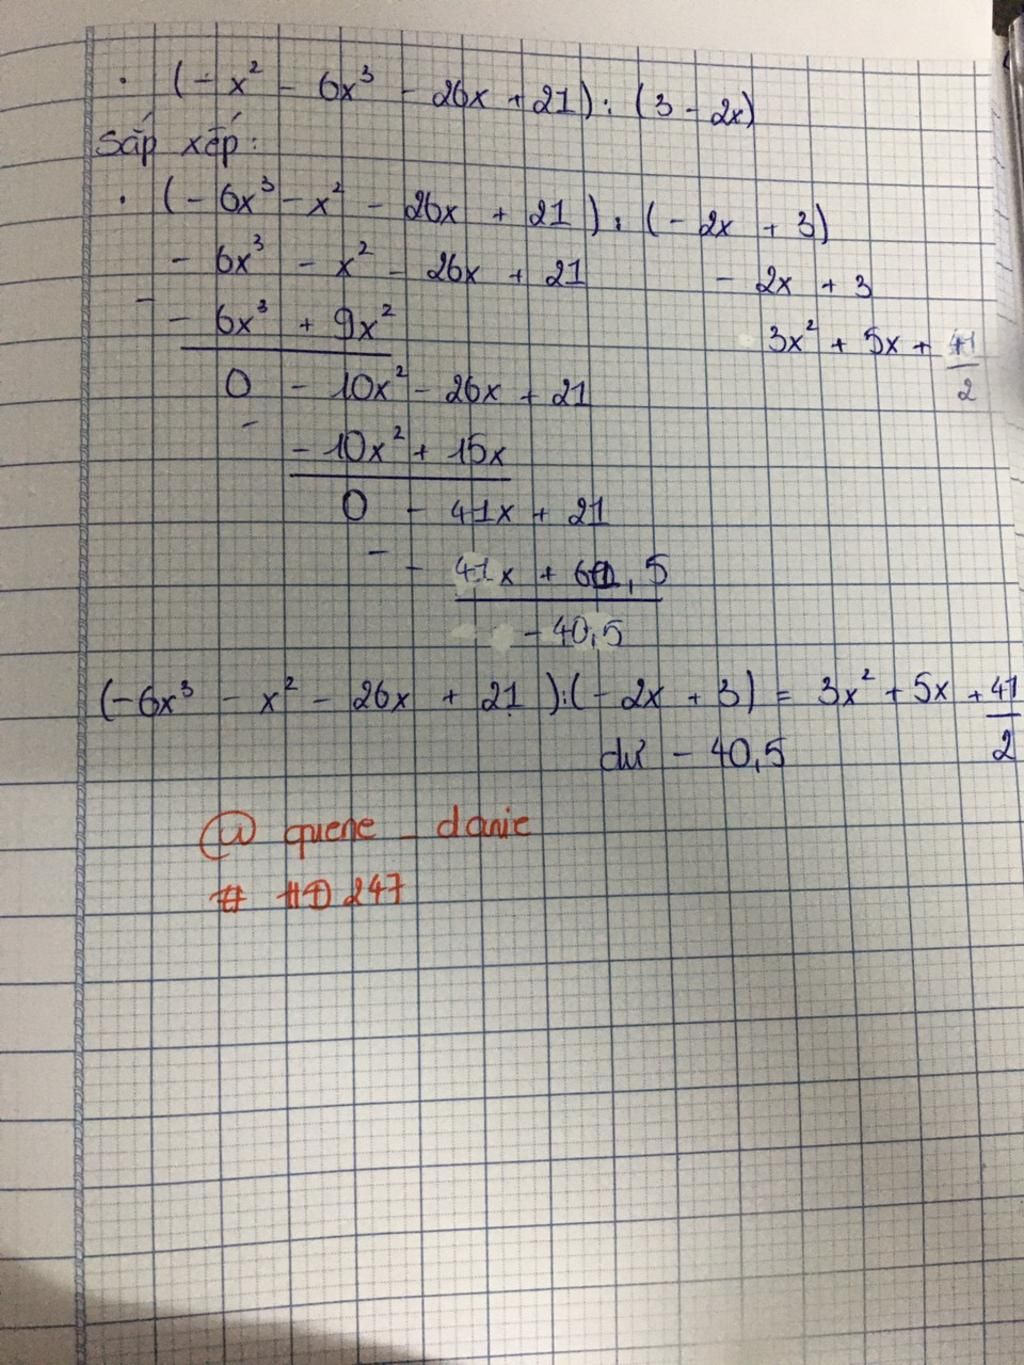 . (- x² - 6x³ - 26x + 21) : (3 - 2x)
Sắp xếp:
. (- 6x³ - x² - 26x + 21) : (- 2x + 3)
- 6x³ - x² - 26x + 21 - 2x + 3
- - 6x³ + 9x² 3x² + 5x + 41/2
0 - 10x² - 26x + 21
- - 10x² + 15x
0 - 41x + 21
- - 41x + 61,5
- 40,5
(-6x³ - x² - 26x + 21) : (- 2x + 3) = 3x² + 5x + 41/2
dư - 40,5
@ quene _ danie
# HD 247